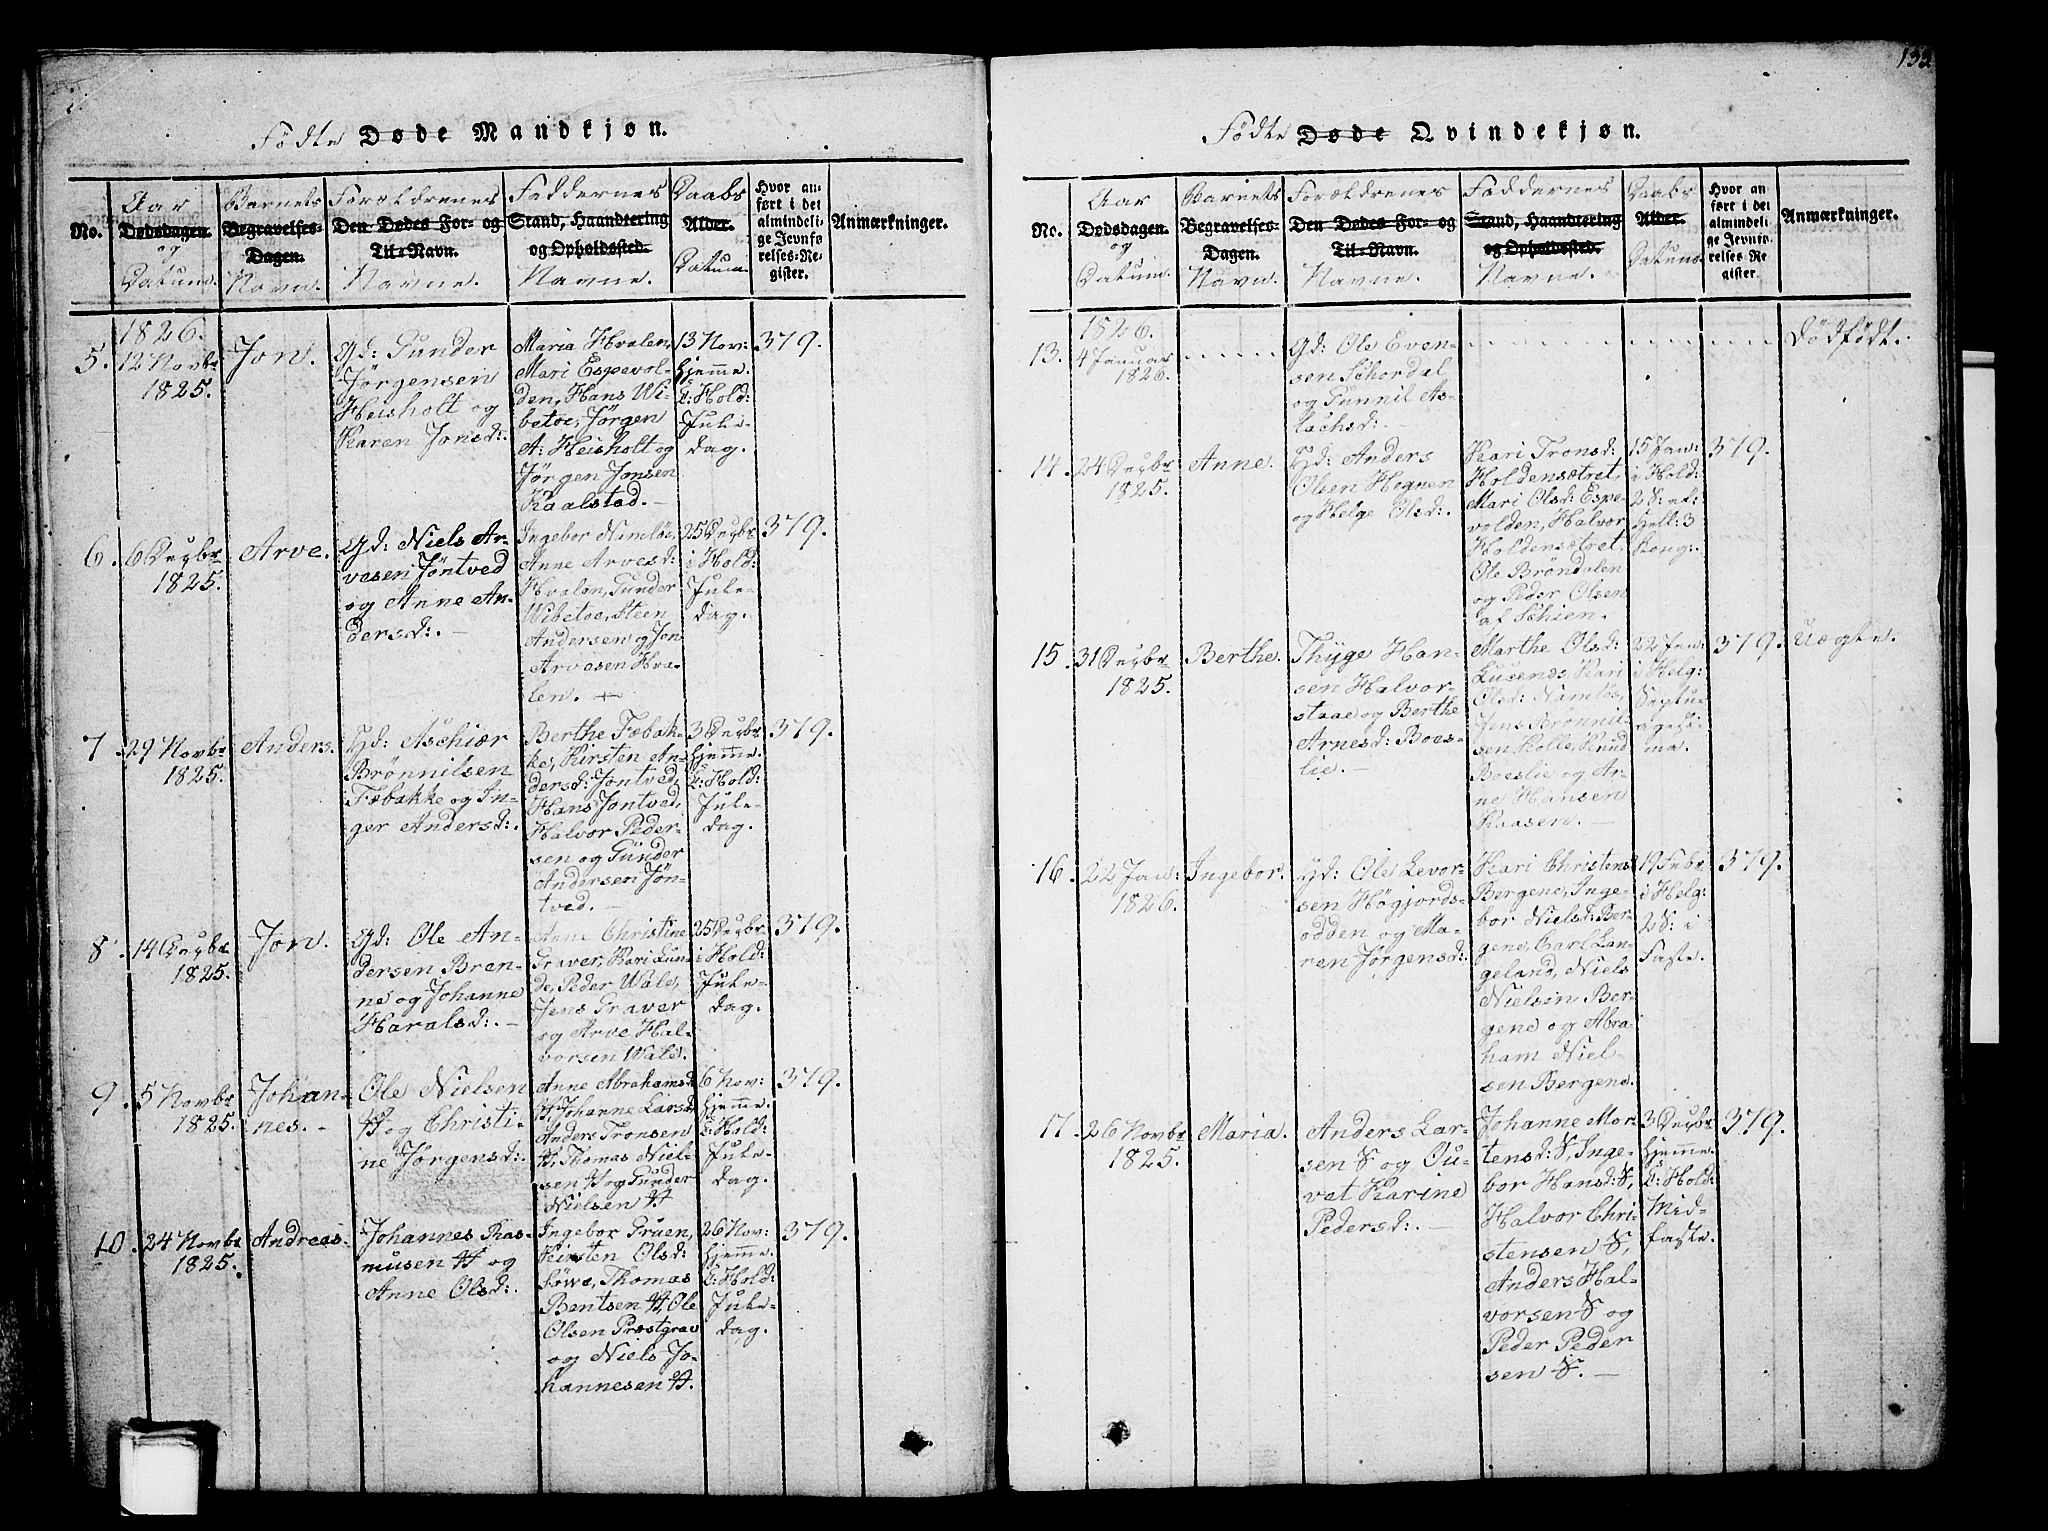 Födte Døde Mandkjøn.
No.
Aar
Dødsdagen.
og
Datum.
Barnets
Begravelses-
Dagen.
Navn.
Forældrenes
Den Dødes For- og
Til-Navn.
Navne.
Faddernes
Stand, Haandtering
og Opholdssted.
Navne.
Daabs
Alder.
Datum.
Hvor an-
ført i det
almindeli-
ge Jevnfø-
relses-Re-
gister.
Anmærkninger.
1826.
5.
12 Novbr
1825.
Jon.
Gd: Gunder
Jørgensen
Heisholt og
Karen Jonsd:
Maria Hvalen,
Mari Espevol-
den, Hans Wi-
betoe, Jørgen
A: Heisholt og
Jørgen Jonsen
Kaalstad. —
13 Nov:
hjemme.
C: Hold:
Jule-
dag.
379.
6.
6 Decbr
1825.
Arve.
Gd: Niels Ar-
vesen Jöntved
og Anne An-
dersd: —
Ingebor Numløs,
Anne Arvesd:
Hvalen, Gunder
Wibetoe, Steen
Andersen og Jon
Arvesen Hva-
len. —
25 Decbr
i Hold:
Jule-
dag.
379.
7.
29 Novbr
1825.
Anders.
Gd: Aschier
Brönnilsen
Fæbakke og In-
ger Andersd:
Berthe Fæbak-
ke, Kirsten An-
dersd: Jontved,
Hans Jontved,
Halvor Peder-
sen og Gunder
Andersen Jön-
tved. —
3 Decbr
hjemme.
C: Hold:
Jule-
dag.
379.
8.
14 Decbr
1825.
Jon.
Gd: Ole An-
dersen Bran-
ne og Johanne
Haralsd: —
Anne Christine
Graver, Kari Lun-
de, Peder Wale,
Jens Graver
og Arve Hal-
vorsen Wale.
25 Decbr
i Hold:
Jule-
dag.
379.
9.
5 Novbr
1825.
Johan-
nes. -
Ole Nielsen
H og Christi-
ne Jørgensd:
Anne Abrahamsd:
H, Johanne Larsd:
Anders Tronsen
H, Thomas Niel-
sen H og Gunder
Nielsen H
6 Nov:
hjemme.
C: Hold:
Jule-
dag.
379.
10.
24 Novbr
1825.
Andreas.
Johannes Ras-
musen H og
Anne Olsd:
Ingebor Gruen,
Kirsten Olsd:
Thomas
Bentsen H, Ole
Olsen Præstgrav
og Niels Jo-
hannesen H.
26 Nov:
hjemme.
C: Hold:
Jule-
dag.
379.
Födte Døde Qvindekjøn.
No.
Aar
Dødsdagen.
og
Datum.
Barnets
Begravelses-
Dagen.
Navn.
Forældrenes
Den Dødes For- og
Til-Navn.
Navne.
Faddernes
Stand, Haandtering
og Opholdssted.
Navne.
Daabs
Alder.
Datum.
Hvor an
ført i det
almindeli-
ge Jevnfø-
relses-Re
gister.
Anmærkninger.
1826.
13.
4 Januar
1826.
Gd: Ole Even-
sen Schordal
og Gunnil As-
lachsd: —
Dödfödt.
14.
24 Decbr
1825.
Anne.
Hd: Anders
Olsen Hegnen
og Helge Olsd:
Kari Tronsd:
Holdensætret,
Mari Olsd: Espe-
volden, Halvor
Holdensætret,
Ole Brøndalen
og Peder Olsen
af Schien.
15 Jan:
i Hold:
2 S: ef:
Hell: 3
Kong:
379.
15.
31 Decbr
1825.
Berthe.
Thyge Han-
sen Halvor-
staae og Berthe
Arnesd: Boes-
lie. —
Marthe Olsd:
Lusenæs, Kari
Olsd: Numløs,
Jens Brönnil-
sen Holle, Knud
Boeslie og Ar-
ne Hansen
Kaasen. —
22 Jan:
i Helg:
Septua
agesi-
ma.
379.
Uægte.
16.
22 Jan:
1826.
Ingebor.
Gd: Ole Levor-
sen Høgjords-
odden og Ma-
ren Jørgensd:
Kari Christensd
Bergene, Inge-
bor Nielsd: Ber-
gene, Carl Lan-
geland, Niels
Nielsen Ber-
gene og Abra-
ham Niel-
sen Bergene.
19 Febr
i Helg:
2 S: i
Faste.
379.
17.
26 Novbr
1825.
Maria.
Anders Lar-
sen S og Ou-
vet Karine
Pedersd: —
Johanne Mor-
tensd: S, Inge-
bor Hansd: S,
Halvor Chri-
stensen S,
Anders Hal-
vorsen S og
Peder Peder
sen S. —
3 Decbr
hjemme.
C: Hold:
Mid-
faste.
379.